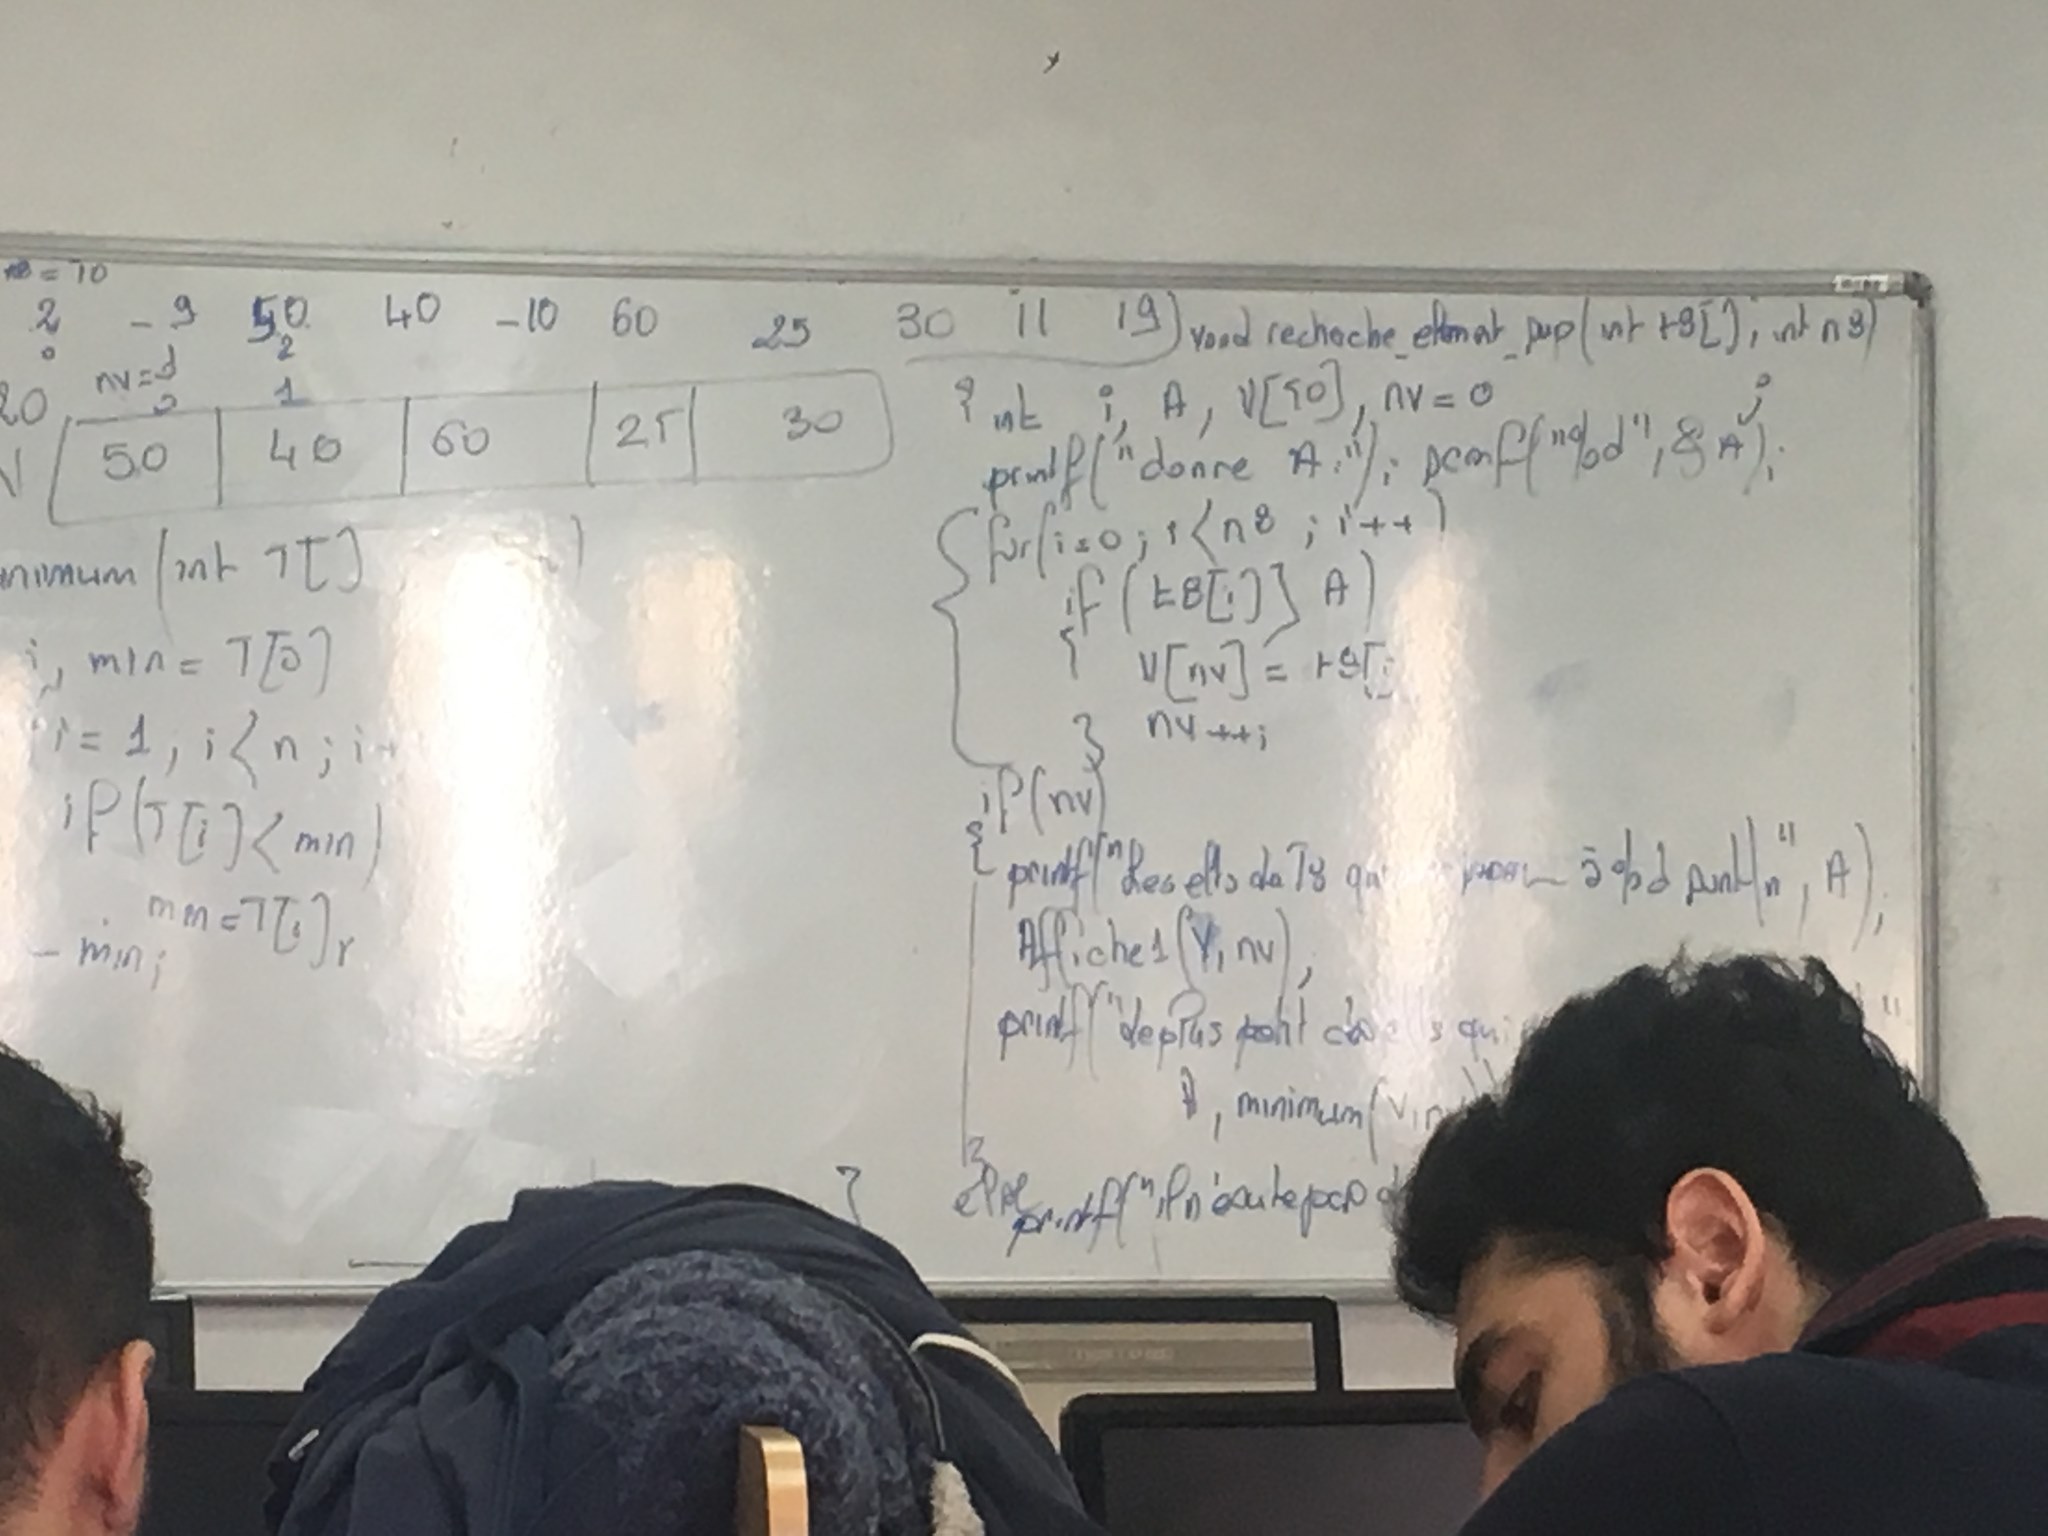 = 10
2 -9 50 40 -10 60 25 30 11 19
0 2
nv=
20 0 1
V 50 40 60 25 30
nimum (int T[] )
i, min = T[0]
i = 1, i < n ; i+
if (T[i] < min)
min = T[i];
min;
void recherche_element_sup(int t8[], int n8)
{ int i, A, V[50], nv = 0 ;
printf("donne A:"); scanf("%d", &A);
{ for(i=0; i<n8 ; i++)
if (t8[i] > A)
{ V[nv] = t8[i
} nv++;
if(nv)
{ printf("Les elts de T8 qui à %d sont\n", A);
Affiche1(V, nv);
printf("le plus petit des elts qui "
A, minimum(V, n ))
}
else
printf("il n'existe pas
}